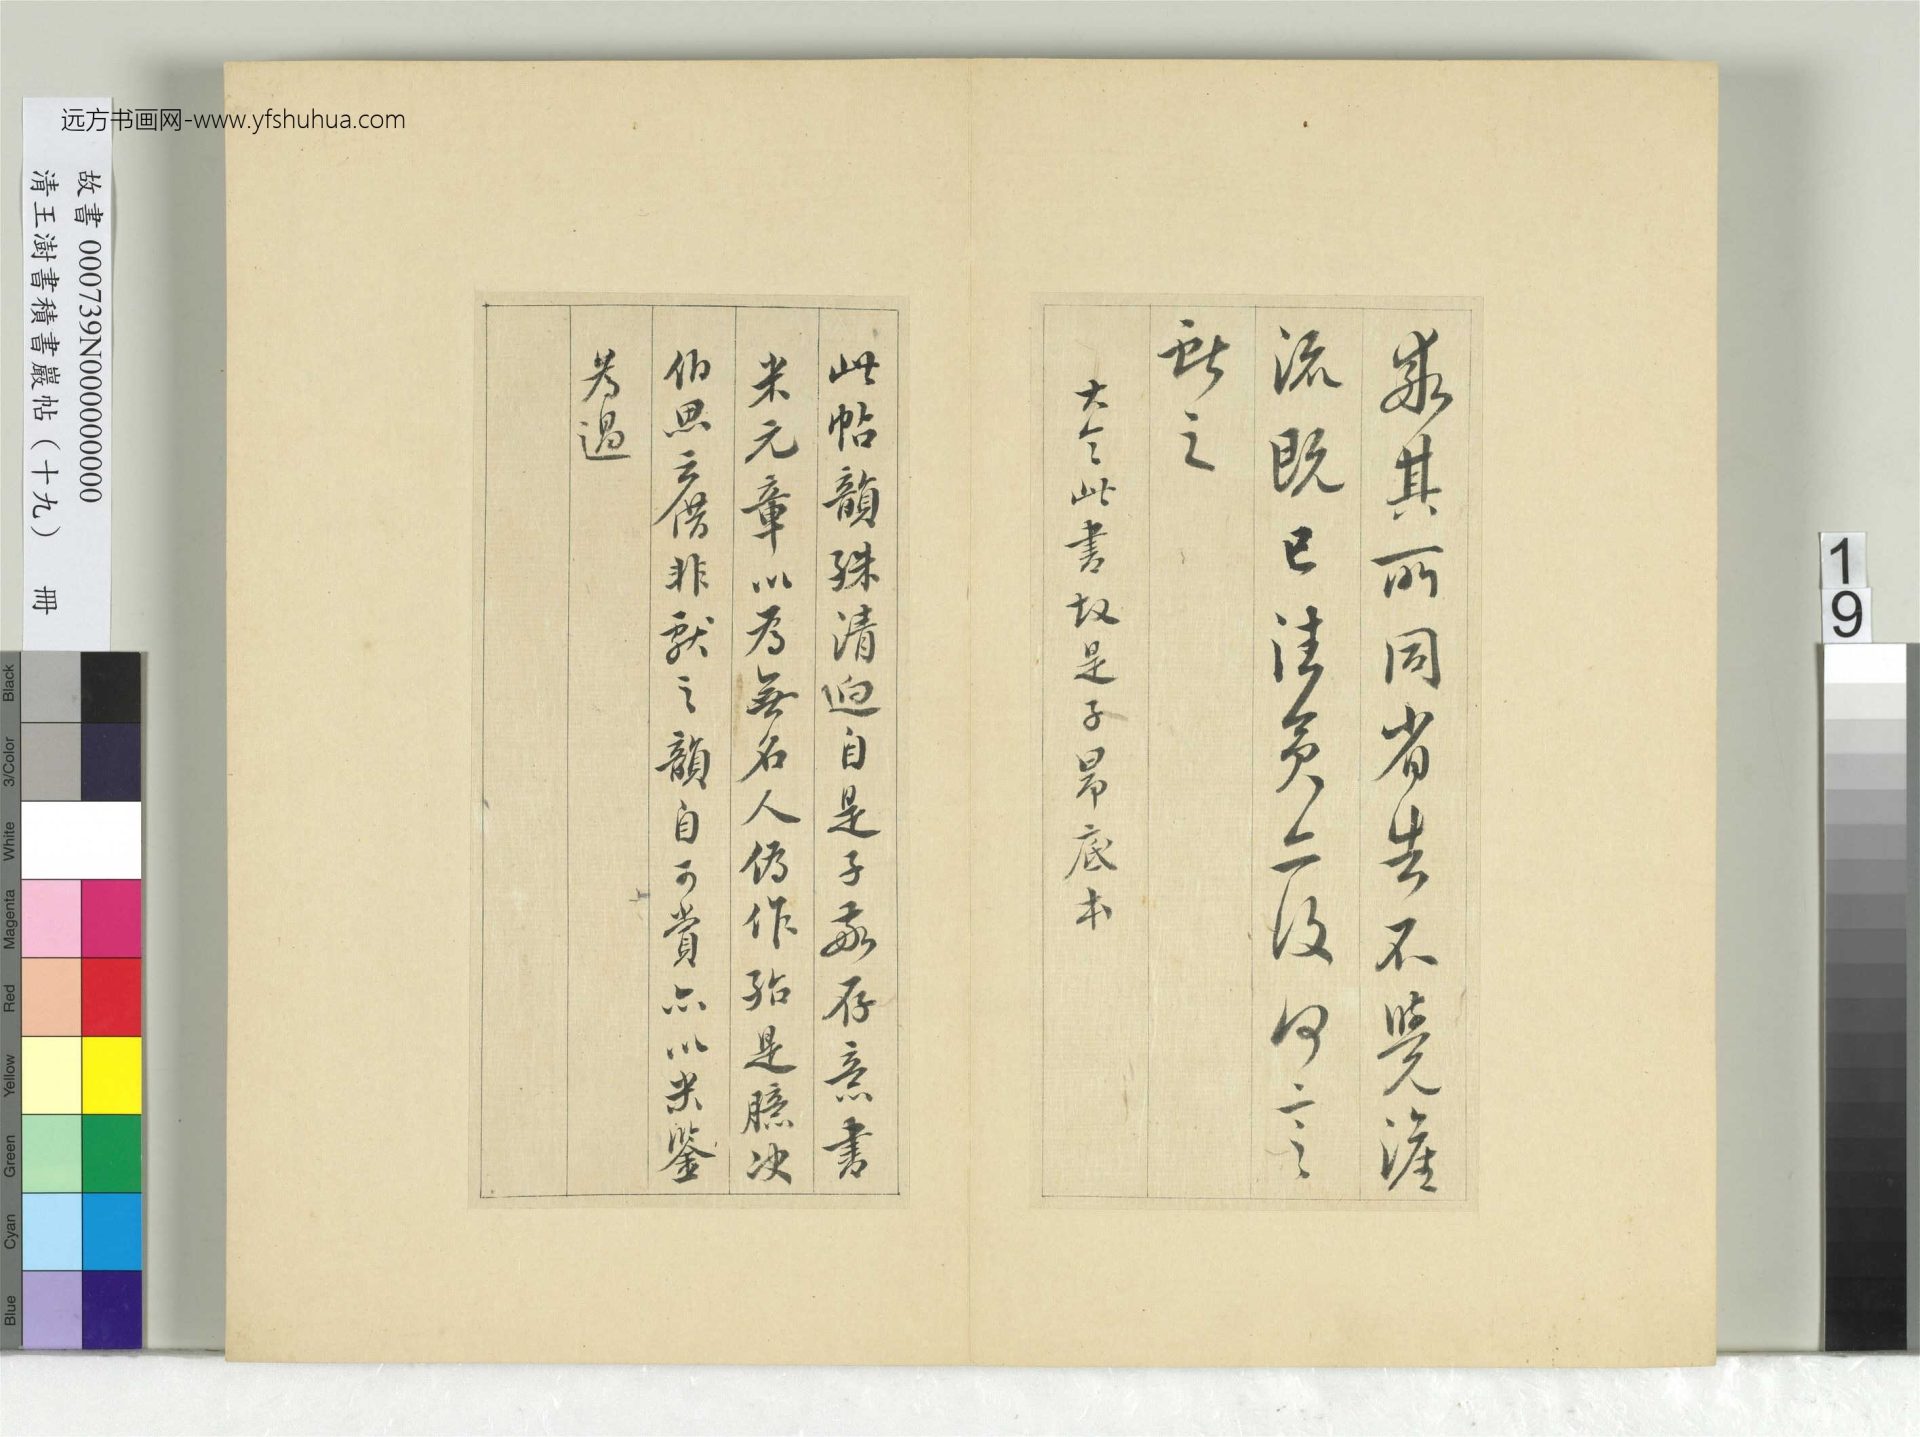 其所同省告不覺
流既已往矣亦復何言
獻之
大令此書故是子昂底本
此帖韻殊清迥自是子敬存意書
米元章以為無名人偽作殆是臆決
伯思云借非獻之韻自可賞亦以米鑒
為過
远方书画网-www.yfshuhua.com
故書 000739N000000000
清王澍書積書巖帖（十九） 冊
19
Black
3/Color
White
Magenta
Red
Yellow
Green
Cyan
Blue